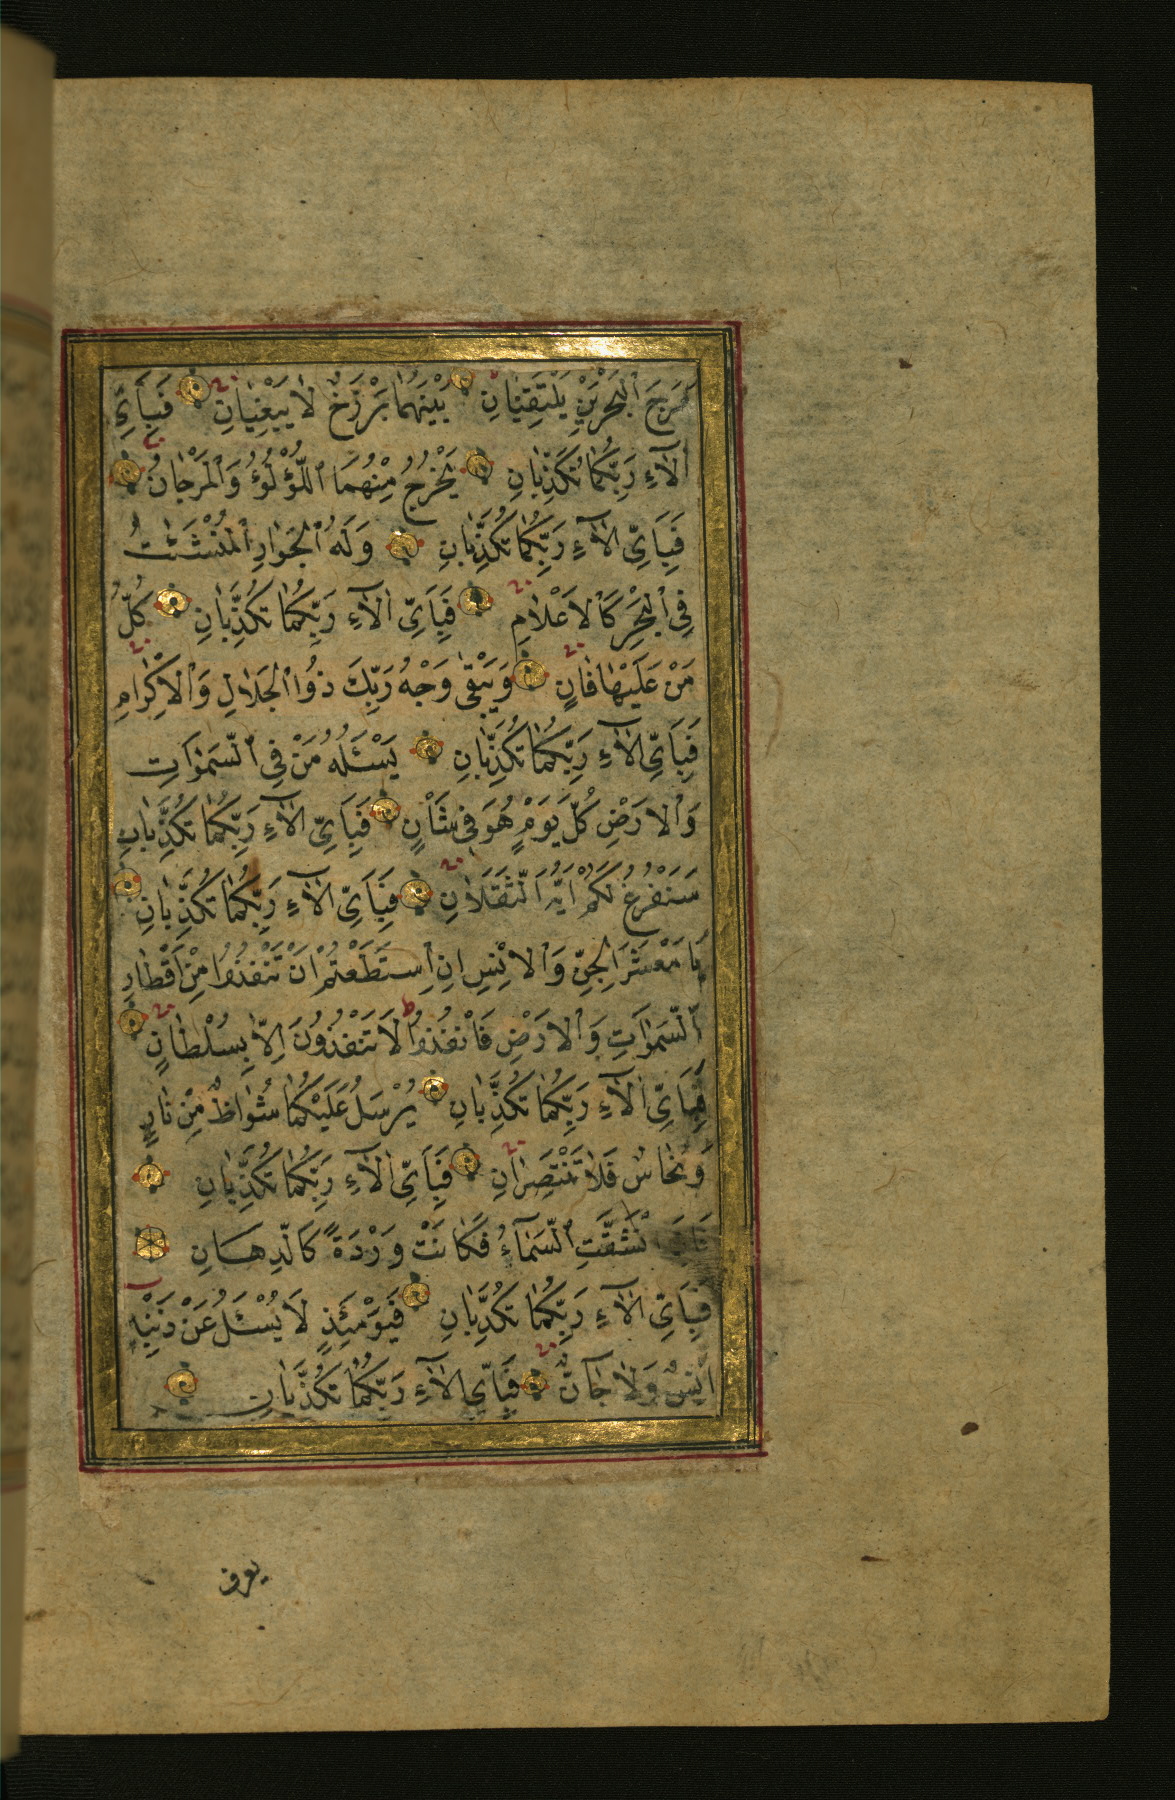 مَرَجَ ٱلْبَحْرَيْنِ يَلْتَقِيٰانِ بَيْنَهُمٰا بَرْزَخٌ لاٰ يَبْغِيٰانِ فَبِأَيِّ
اٰلآءِ رَبِّكُمٰا تُكَذِّبٰانِ يَخْرُجُ مِنْهُمَا ٱللُّؤْلُؤُ وَٱلْمَرْجٰانُ
فَبِأَيِّ اٰلآءِ رَبِّكُمٰا تُكَذِّبٰانِ وَلَهُ ٱلْجَوٰارِ ٱلْمُنْشَئٰتُ
فِى ٱلْبَحْرِ كَالْاَعْلٰامِ فَبِأَيِّ اٰلآءِ رَبِّكُمٰا تُكَذِّبٰانِ كُلُّ
مَنْ عَلَيْهٰا فٰانٍ وَيَبْقٰى وَجْهُ رَبِّكَ ذُوا ٱلْجَلاٰلِ وَٱلْاِكْرٰامِ
فَبِأَيِّ اٰلآءِ رَبِّكُمٰا تُكَذِّبٰانِ يَسْـَٔلُهُ مَنْ فِى ٱلسَّمٰوَاتِ
وَٱلْارَضِ كُلَّ يَوْمٍ هُوَ فى شَأْنٍ فَبِأَيِّ اٰلآءِ رَبِّكُمٰا تُكَذِّبٰانِ
سَنَفْرُغُ لَكُمْ اَيُّهَ الثَّقَلاٰنِ فَبِأَيِّ اٰلآءِ رَبِّكُمٰا تُكَذِّبٰانِ
يَا مَعْشَرَ الْجِنِّ وَٱلْانِسِ اِنِ ٱسْتَطَعْتُمْ اَنْ تَنْفُذُوا مِنْ اَقْطٰارِ
ٱلسَّمٰوَاتِ وَٱلْارَضِ فَانْفُذُوا لَا تَنْفُذُونَ اِلاّٰ بِسُلْطٰانٍ
فَبِأَيِّ اٰلآءِ رَبِّكُمٰا تُكَذِّبٰانِ يُرْسَلُ عَلَيْكُمٰا شُوٰاظٌ مِنْ نٰارٍ
وَنُحٰاسٌ فَلاٰ تَنْتَصِرٰانِ فَبِأَيِّ اٰلآءِ رَبِّكُمٰا تُكَذِّبٰانِ
ٱنْشَقَّتِ ٱلسَّمٰآءُ فَكٰانَتْ وَرْدَةً كَالدِّهَانِ
فَبِأَيِّ اٰلآءِ رَبِّكُمٰا تُكَذِّبٰانِ فَيَوْمَئِذٍ لَا يُسْـَٔلُ عَنْ ذَنْبِهِ
اِنْسٌ وَلاٰ جٰآنٌّ فَبِأَيِّ اٰلآءِ رَبِّكُمٰا تُكَذِّبٰانِ
يعرف